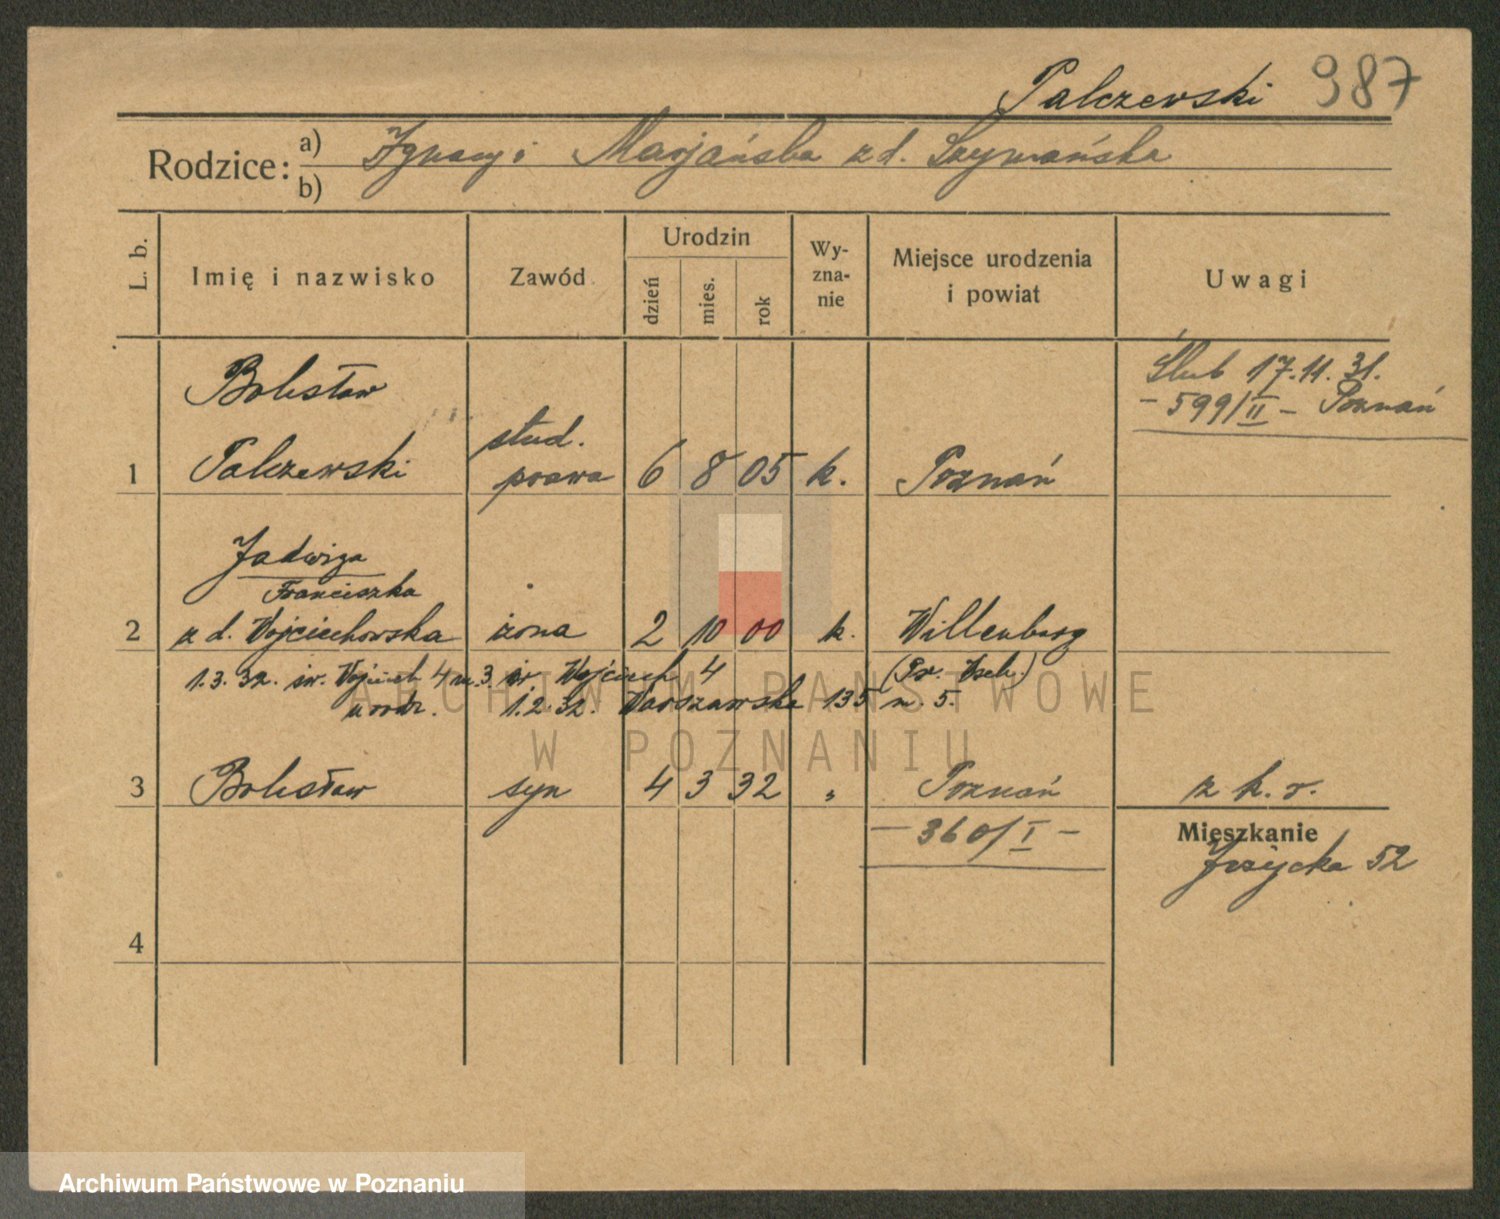 Palczewski 987
Rodzice: a) Ignacy i Marjańska z d. Szymańska
b)
L. b.
Imię i nazwisko
Zawód
Urodzin
dzień
mies.
rok
Wy-
zna-
nie
Miejsce urodzenia
i powiat
Uwagi
Ślub 17.11.31.
- 599/II - Poznań
Bolesław
stud.
1 Palczewski prawa 6 8 05 k. Poznań
Jadwiga
Franciszka
2 z d. Wojciechowska żona 2 10 00 k. Willenberg
(Pr. Wsch.)
1.3.32. św. Wojciech 4 m. 3. św. Wojciech 4
1.2.32. Warszawska 135 m. 5.
3 Bolesław syn 4 3 32 " Poznań z k. r.
- 360/I -
Mieszkanie
Jeżycka 52
4
ARCHIWUM PAŃSTWOWE
W POZNANIU
Archiwum Państwowe w Poznaniu